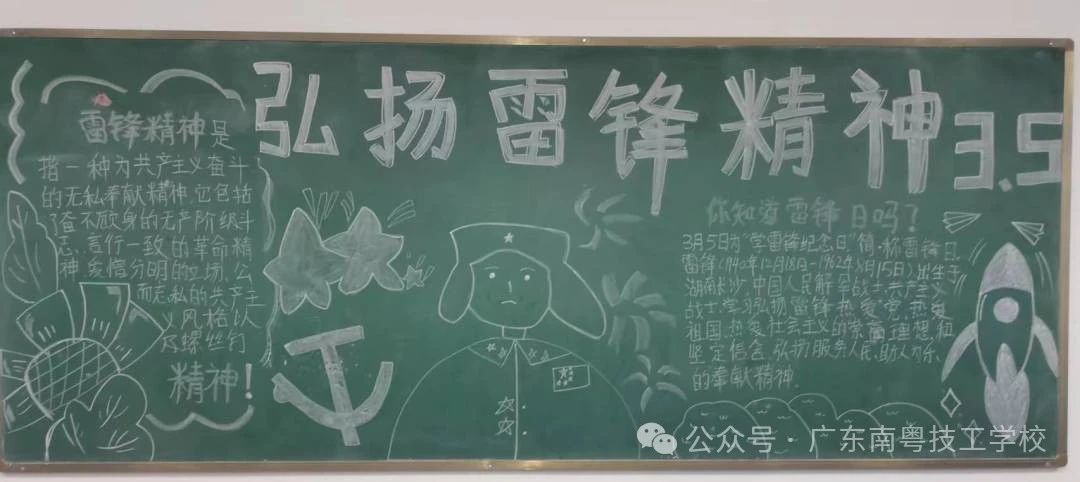 弘扬雷锋精神3.5
雷锋精神是
指一种为共产主义奋斗
的无私奉献精神,它包括
了奋不顾身的无产阶级斗
志,言行一致的革命精
神,爱憎分明的立场,公
而忘私的共产主
义风格以
及螺丝钉
精神!
你知道雷锋日吗?
3月5日为"学雷锋纪念日"简称雷锋日,
雷锋(1940年12月18日-1962年8月15日)出生于
湖南长沙,中国人民解军战士,共产主义
战士,学习弘扬雷锋热爱党,热爱
祖国,热爱社会主义的崇高理想和
坚定信念,弘扬服务人民,助人为乐,
的奉献精神.
公众号·广东南粤技工学校